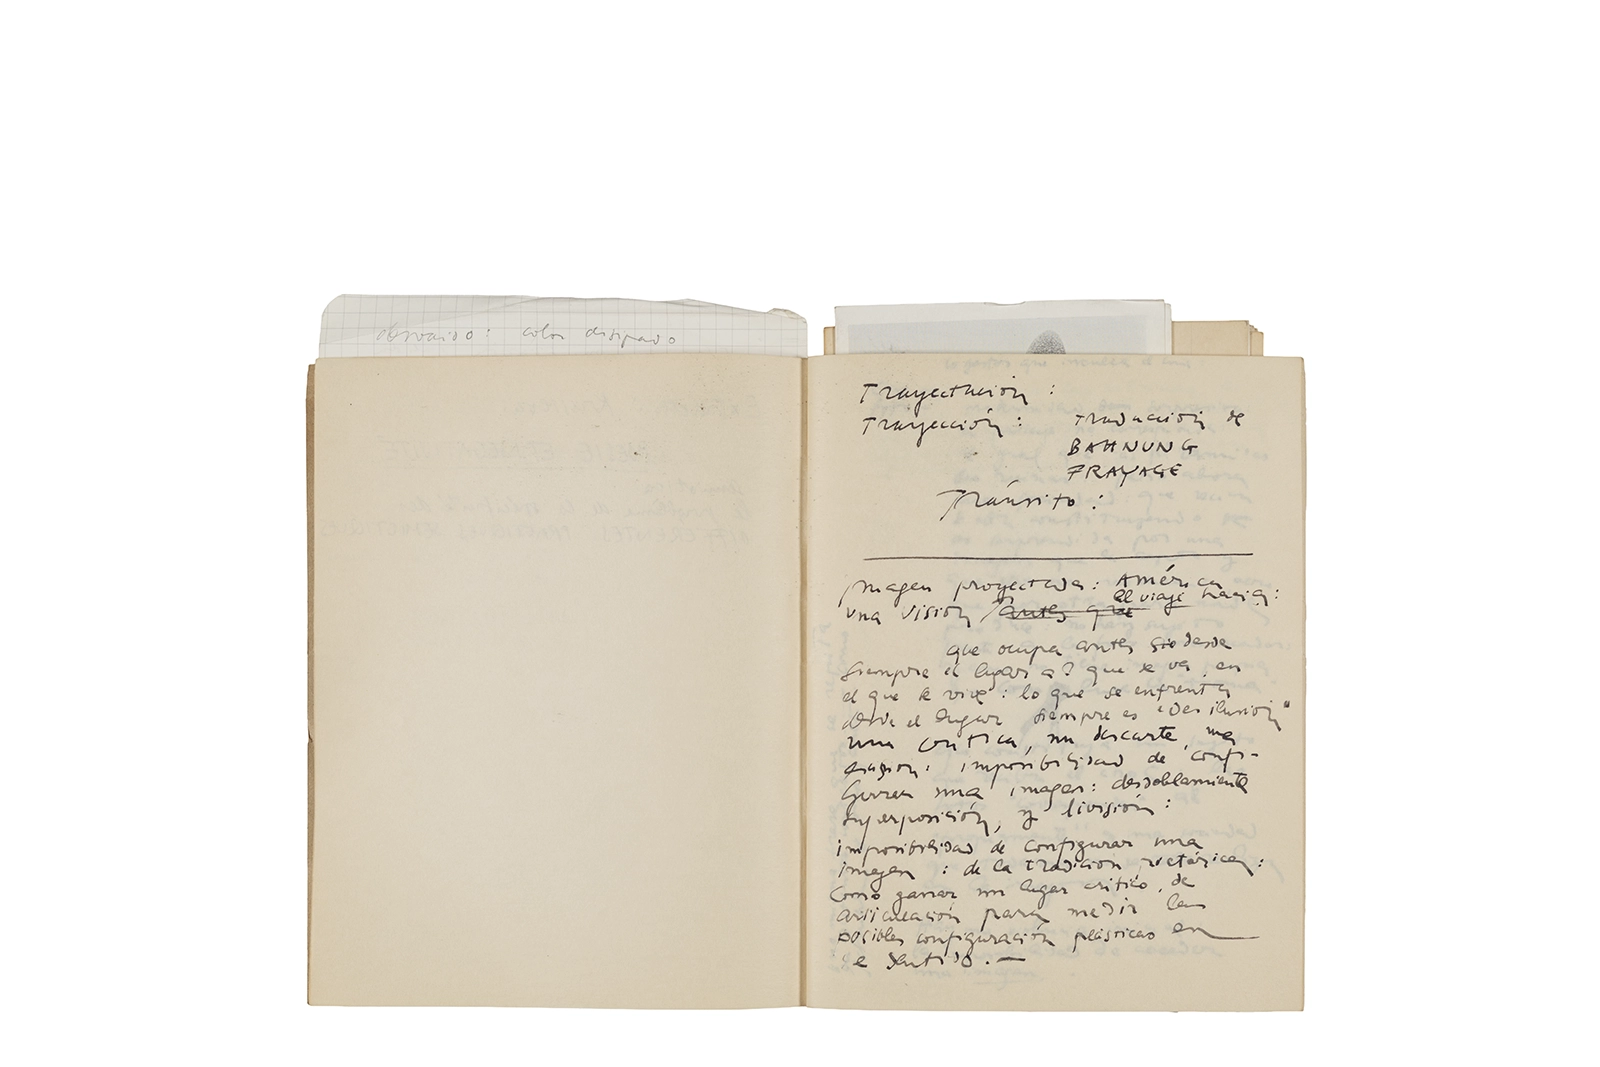 color disipado
Trayectución :
Trayección : traducción de
BAHNUNG
FRAYAGE
Tránsito :
Imagen proyectada : América
el viaje hacia :
una visión / antes que
que ocupa antes desde
siempre el lugar a que se va, en
el que se vive : lo que se enfrenta
desde el lugar siempre es "Desilusión"
una crítica, un descarte, una
imposibilidad de confi-
gurar una imagen : desdoblamiento
superposición, y división :
imposibilidad de configurar una
imagen : de la tradición pictórica :
como ganar un lugar crítico, de
articulación para medir las
posibles configuración plásticas en
se sentido . —